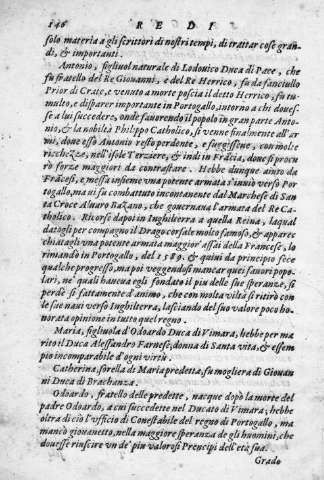 146 RE DI
solo materia a gli scrittori di nostri tempi, di trattar cose gran-
di, & importanti.
Antonio, figliuol naturale di Lodouico Duca di Pace, che
fu fratello del Re Giouanni, e del Re Herrico, fu da fanciullo
Prior di Crato, e venuto a morte poscia il detto Herrico, fu tu-
multo, e disparer importante in Portogallo, intorno a chi doues-
se a lui succedere, onde fauorendo il popolo in gran parte Anto-
nio, & la nobiltà Philippo Catholico, si venne finalmente all'ar
mi, doue esso Antonio restò perdente, e fuggissene, con molte
ricchezze, nell'isole Terzere, & indi in Frãcia, doue si procu
rò forze maggiori da contrastare. Hebbe dunque aiuto da
Frãcesi, e messa insieme vna potente armata s'inuiò verso Por
togallo, ma vi fu combattuto incontanente dal Marchese di San
ta Croce Aluaro Bazano, che gouernaua l'armata del Re Ca-
tholico. Ricorse dapoi in Inghilterra a quella Reina, laqual
datogli per compagno il Drago corsale molto famoso, & apparec
chiatagli vna potente armata maggior' assai della Francese, lo
rimandò in Portogallo, del 1589. & quiui da principio fece
qualche progresso, ma poi veggendosi mancar quei fauori popo-
lari, ne' quali haueua egli fondato il più delle sue speranze, si
perdè sì fattamente d'animo, che con molta viltà si ritirò con
le sue naui verso Inghilterra, lasciando del suo valore poco ho-
norata opinione in tutto quel regno.
Maria, figliuola d'Odoardo Duca di Vimara, hebbe per ma
rito il Duca Alessandro Farnese; donna di Santa vita, & essem
pio incomparabile d'ogni virtù.
Catherina, sorella di Maria predetta, fu mogliera di Giouan
ni Duca di Brachanza.
Odoardo, fratello delle predette, nacque dopò la morte del
padre Odoardo, a cui succedette nel Ducato di Vimara, hebbe
oltra di ciò l'ufficio di Conestabile del regno di Portogallo, ma
mancò giouanetto, nella maggiore speranza de gli huomini, che
douesse riuscire vn de' più valorosi Prencipi dell'età sua.
Grado